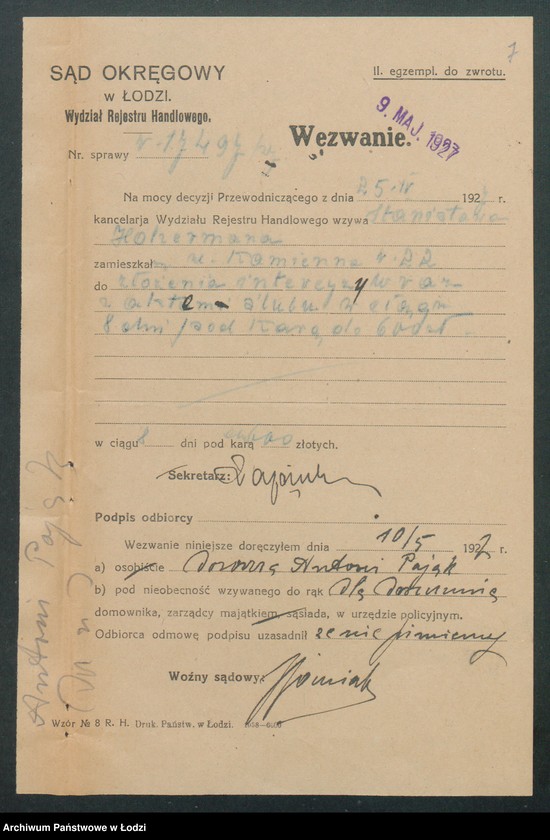 7
SĄD OKRĘGOWY
w ŁODZI.
Wydział Rejestru Handlowego.
II. egzempl. do zwrotu.
9. MAJ. 1927
Wezwanie.
Nr. sprawy
Na mocy decyzji Przewodniczącego z dnia 25. IV 192 r.
kancelarja Wydziału Rejestru Handlowego wzywa Stanisława
zamieszkał ul. Kamienna N. 22
do złożenia intercyzy wraz
z aktem ślubu w ciągu
8 dni pod karą do 600 zł.
w ciągu 8 dni pod karą 600 złotych.
Sekretarz:
Podpis odbiorcy
Wezwanie niniejsze doręczyłem dnia 10/5 1927 r.
a) osobiście dozorca Antoni Pająk
b) pod nieobecność wzywanego do rąk dla doręczenia
domownika, zarządcy majątkiem, sąsiada, w urzędzie policyjnym.
Odbiorca odmowę podpisu uzasadnił że nie piśmienny
Woźny sądowy:
Antoni Pająk
Wzór № 8 R. H. Druk. Państw. w Łodzi.
Archiwum Państwowe w Łodzi